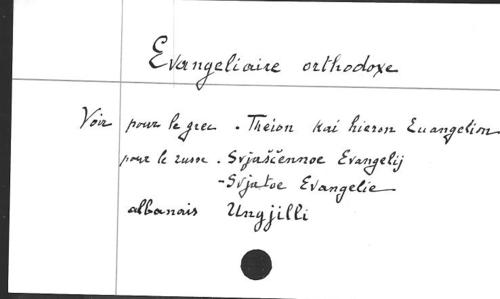 Evangeliaire orthodoxe
Voir pour le grec . Theion kai hieron Euangelion
pour le russe . Svjaščennoe Evangelij
- Svjatoe Evangelie
albanais Ungjilli